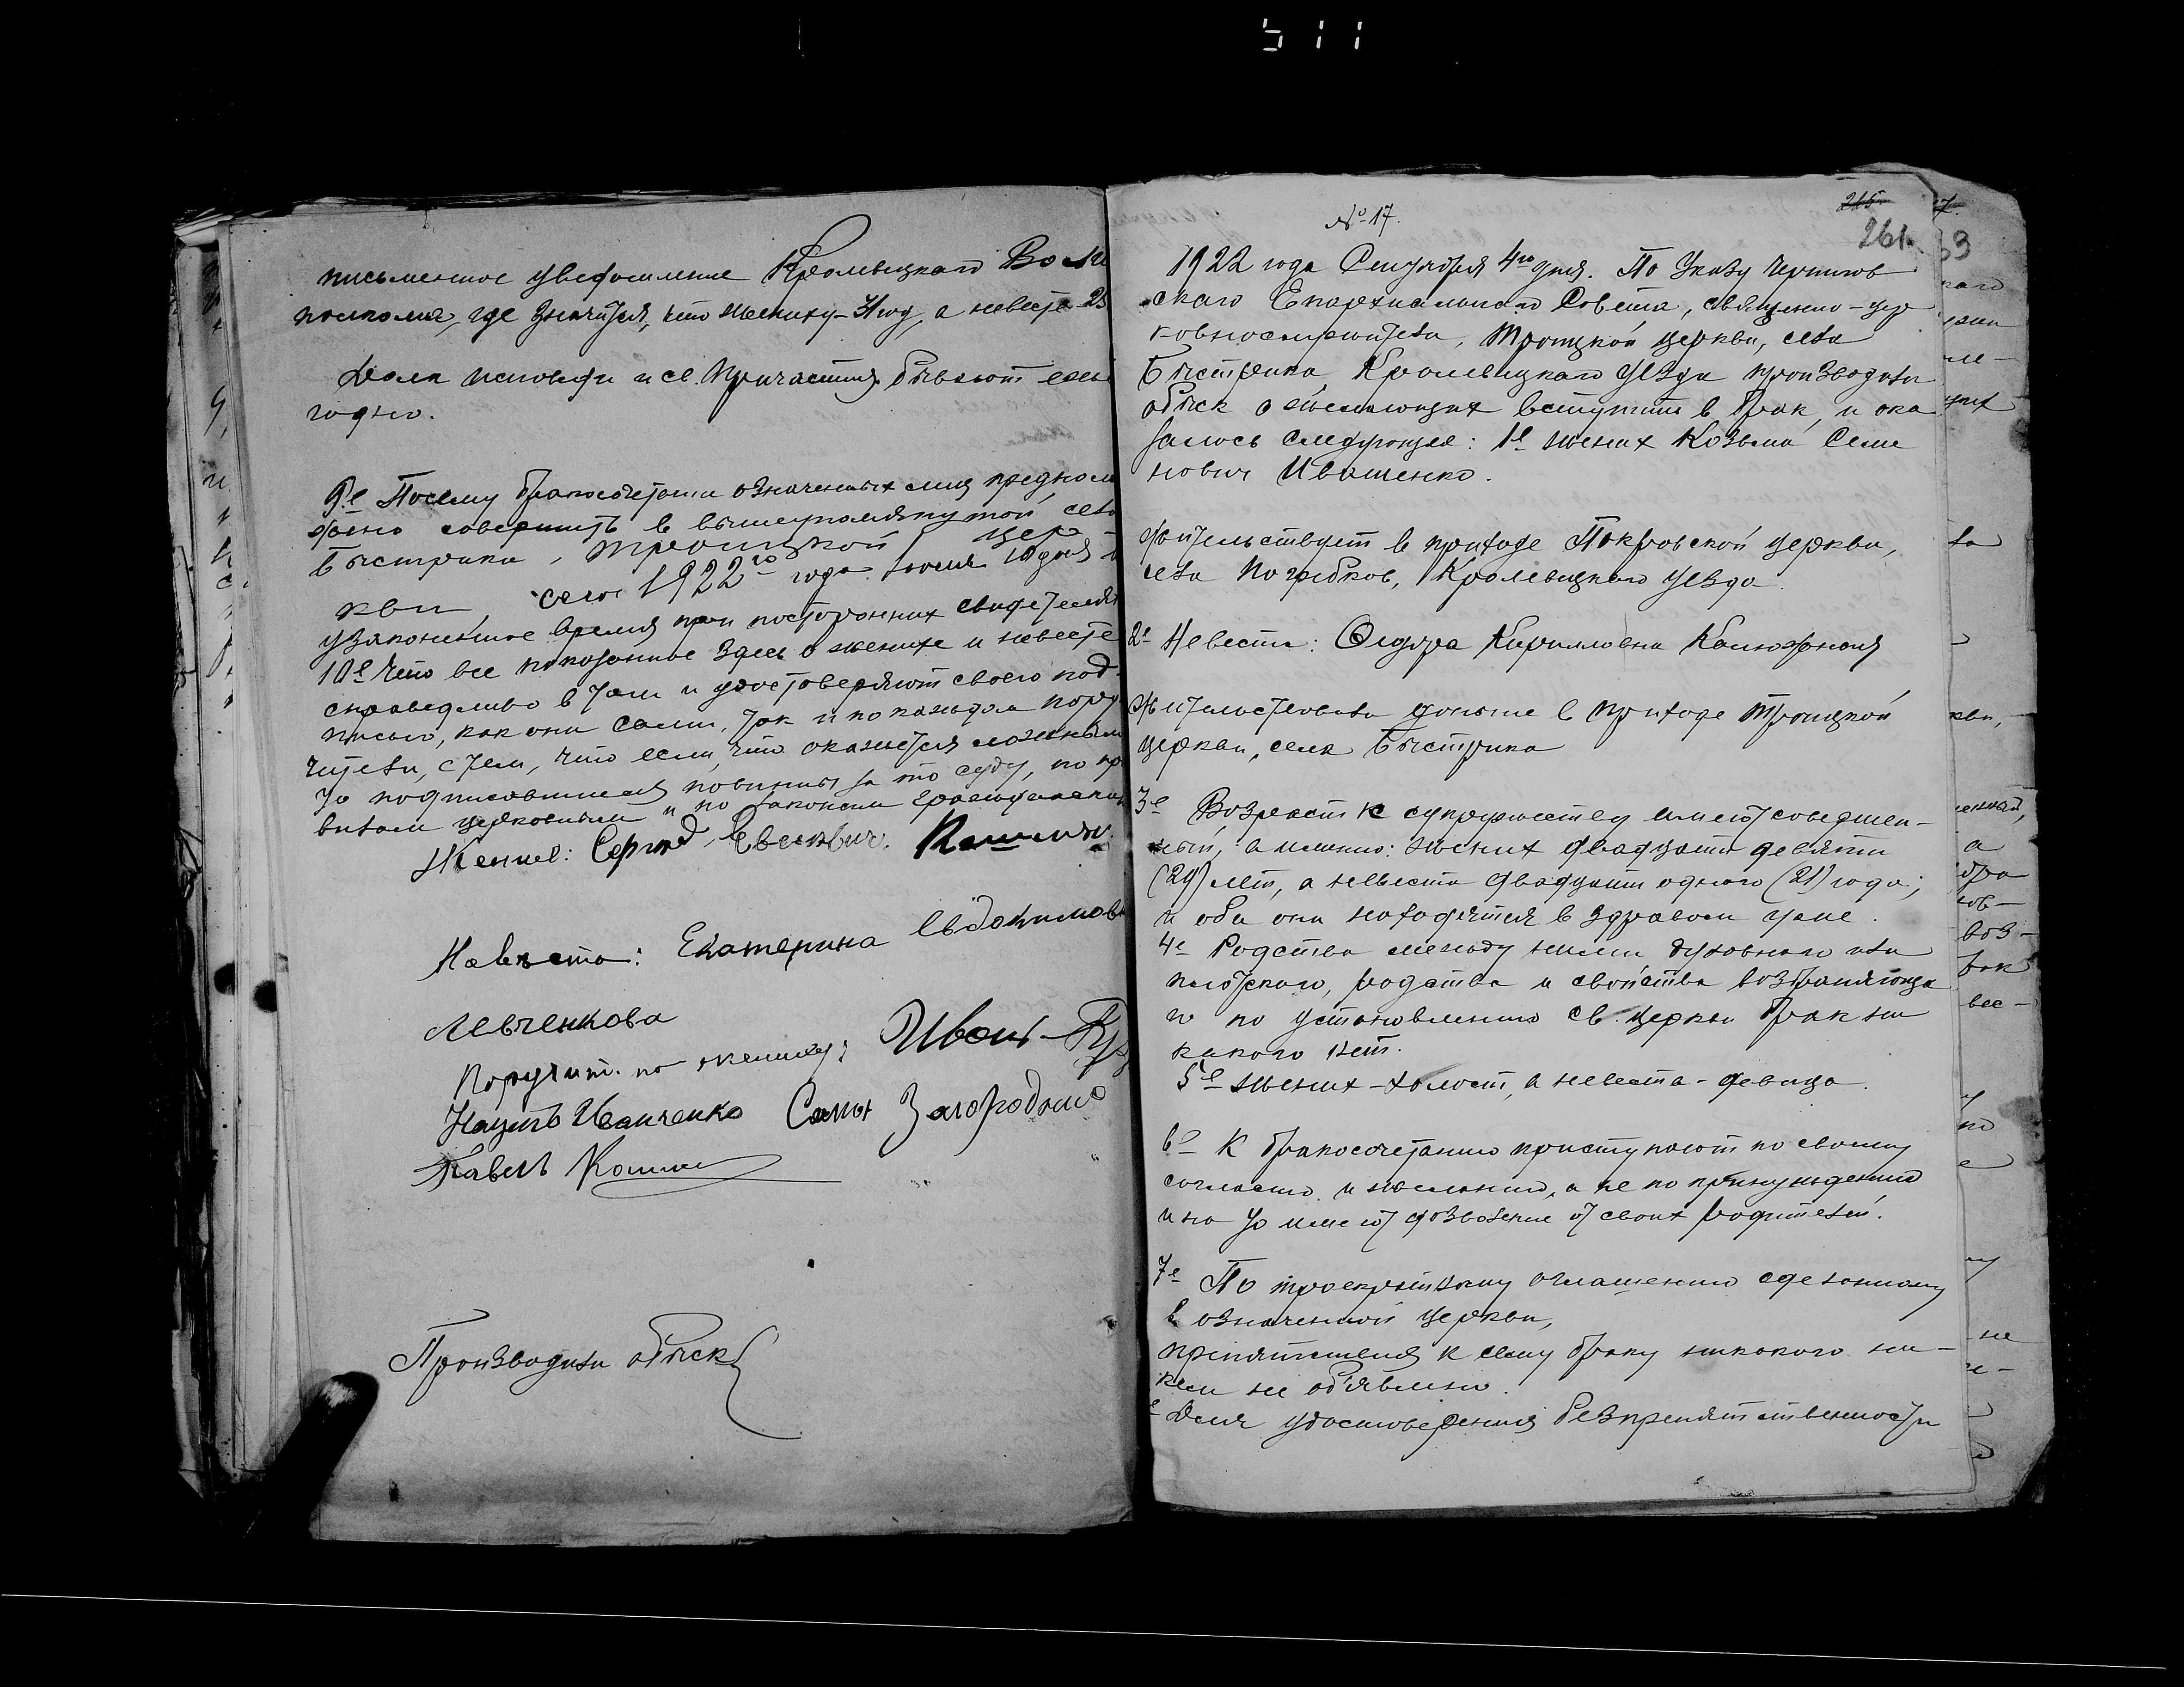 511
письменное уведомление Кролевецкого Воли
полкома, где значится, что жениху - 31 год, а невесте 23
Долг исповеди и св. Причастия бывают еже
годно.
9е Посему бракосочетание означенных лиц предполо
жено совершить в вышеупомянутой села
Быстрика, Троицкой цер
кви, сего 1922го года июля 10 дня в
узаконенное время при посторонних свидетелях
10е Что все показанное здесь о женихе и невесте
справедливо в том и удостоверяют своею под-
писью, как они сами, так и по каждом пору
чители, с тем, что если, что окажется ложным
то подписавшиеся повинны за то суду, по пра
вилам церковным и по законам гражданским
Жених: Сергей Евсеевич
Невѣста: Екатерина Евдокимовн
Левченкова
Поручит. по женихе: Иван
Иванченко Загородний
Павелъ
Производили обыск
№ 17.
215
261.
1922 года Сентября 4го дня. По Указу Чернигов
скаго Епархиальнаго Совета, священно-цер
ковнослужители, Троицкой церкви, села
Быстрика, Кролевецкаго уезда производили
обыск о желающих вступить в брак, и ока
залось следующее: 1е жених Козьма Семе
нович Иващенко.
Жительствует в приходе Покровской церкви,
села Погребков, Кролевецкаго уезда.
2е Невеста: Федора Кирилловна Калюжная
Жительствовала доныне в приходе Троицкой
церкви, села Быстрика
3е Возраст к супружеству имеют совершен-
ный, а именно: жених двадцати девяти
(29) лет, а невеста двадцати одного (21) года;
и оба они находятся в здравом уме.
4е Родства между ними духовнаго или
плотскаго, родства и свойства возбраняюща
го по установлению св. церкви брак ни
какого нет.
5е Жених - холост, а невеста - девица.
6е К бракосочетанию приступают по своему
согласию и желанию, а не по принуждению
и на то имеют дозволение от своих родителей.
7е По троекратному оглашению сделанному
в означенной церкви,
препятствия к сему браку никакого ни-
кем не объявлено.
Для удостоверения безпрепятственности